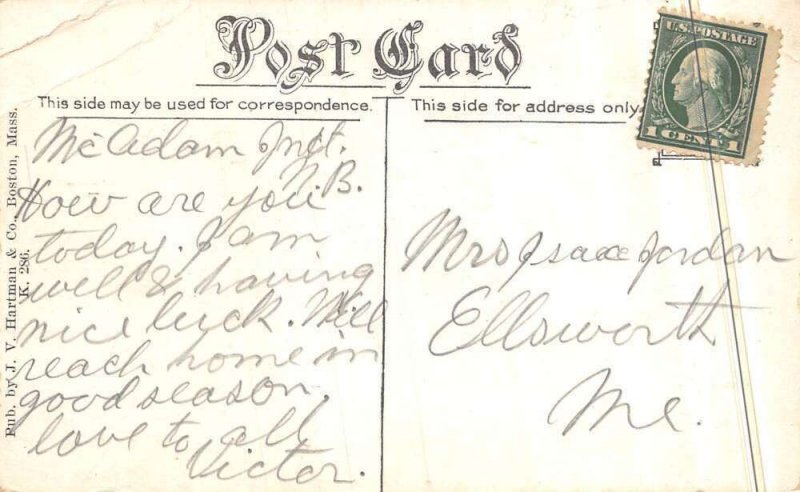 Post Card
This side may be used for correspondence.
This side for address only
U.S. POSTAGE
1 CENT 1
Pub. by J. V. Hartman & Co., Boston, Mass.
K. 286.
McAdam Jnct.
N.B.
How are you
today. I am
well & having
nice luck. Will
reach home in
good season.
love to all
Victor.
Mrs Isaac Jordan
Ellsworth
Me.